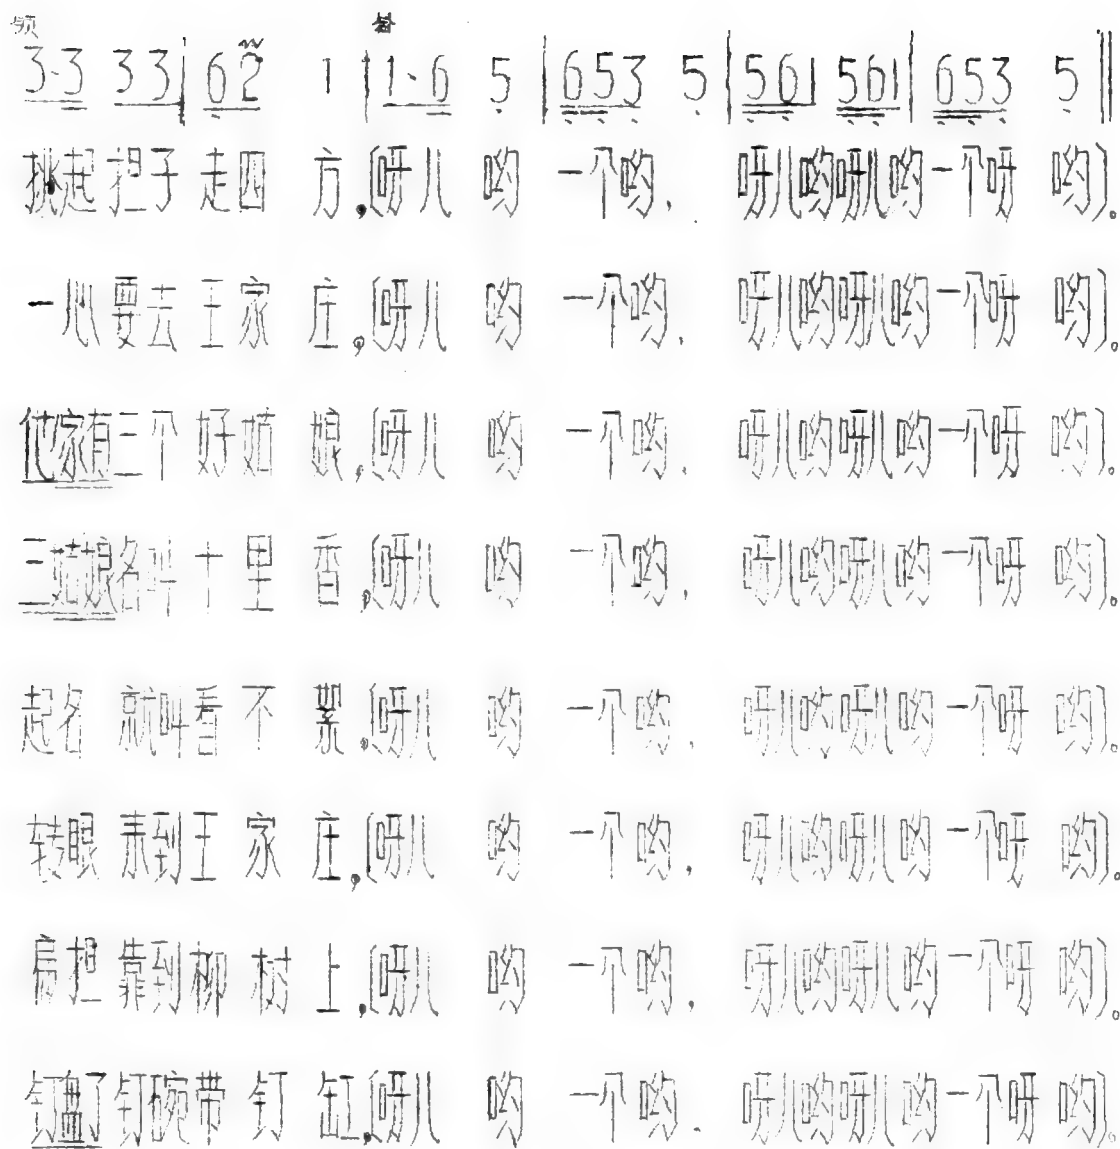 领 합
3·3 33 | 6 2 1 | 1·6 5 | 653 5 | 561 561 | 653 5 ‖
挑起担子走四方,(呀儿哟一个哟,呀儿哟呀儿哟一个呀哟)。
一心要去王家庄,(呀儿哟一个哟,呀儿哟呀儿哟一个呀哟)。
他家有三个好姑娘,(呀儿哟一个哟,呀儿哟呀儿哟一个呀哟)。
三姑娘名叫十里香,(呀儿哟一个哟,呀儿哟呀儿哟一个呀哟)。
起名就叫看不累,(呀儿哟一个哟,呀儿哟呀儿哟一个呀哟)。
转眼来到王家庄,(呀儿哟一个哟,呀儿哟呀儿哟一个呀哟)。
肩担靠到柳树上,(呀儿哟一个哟,呀儿哟呀儿哟一个呀哟)。
钉盘了钉碗带钉缸,(呀儿哟一个哟、呀儿哟呀儿哟一个呀哟)。